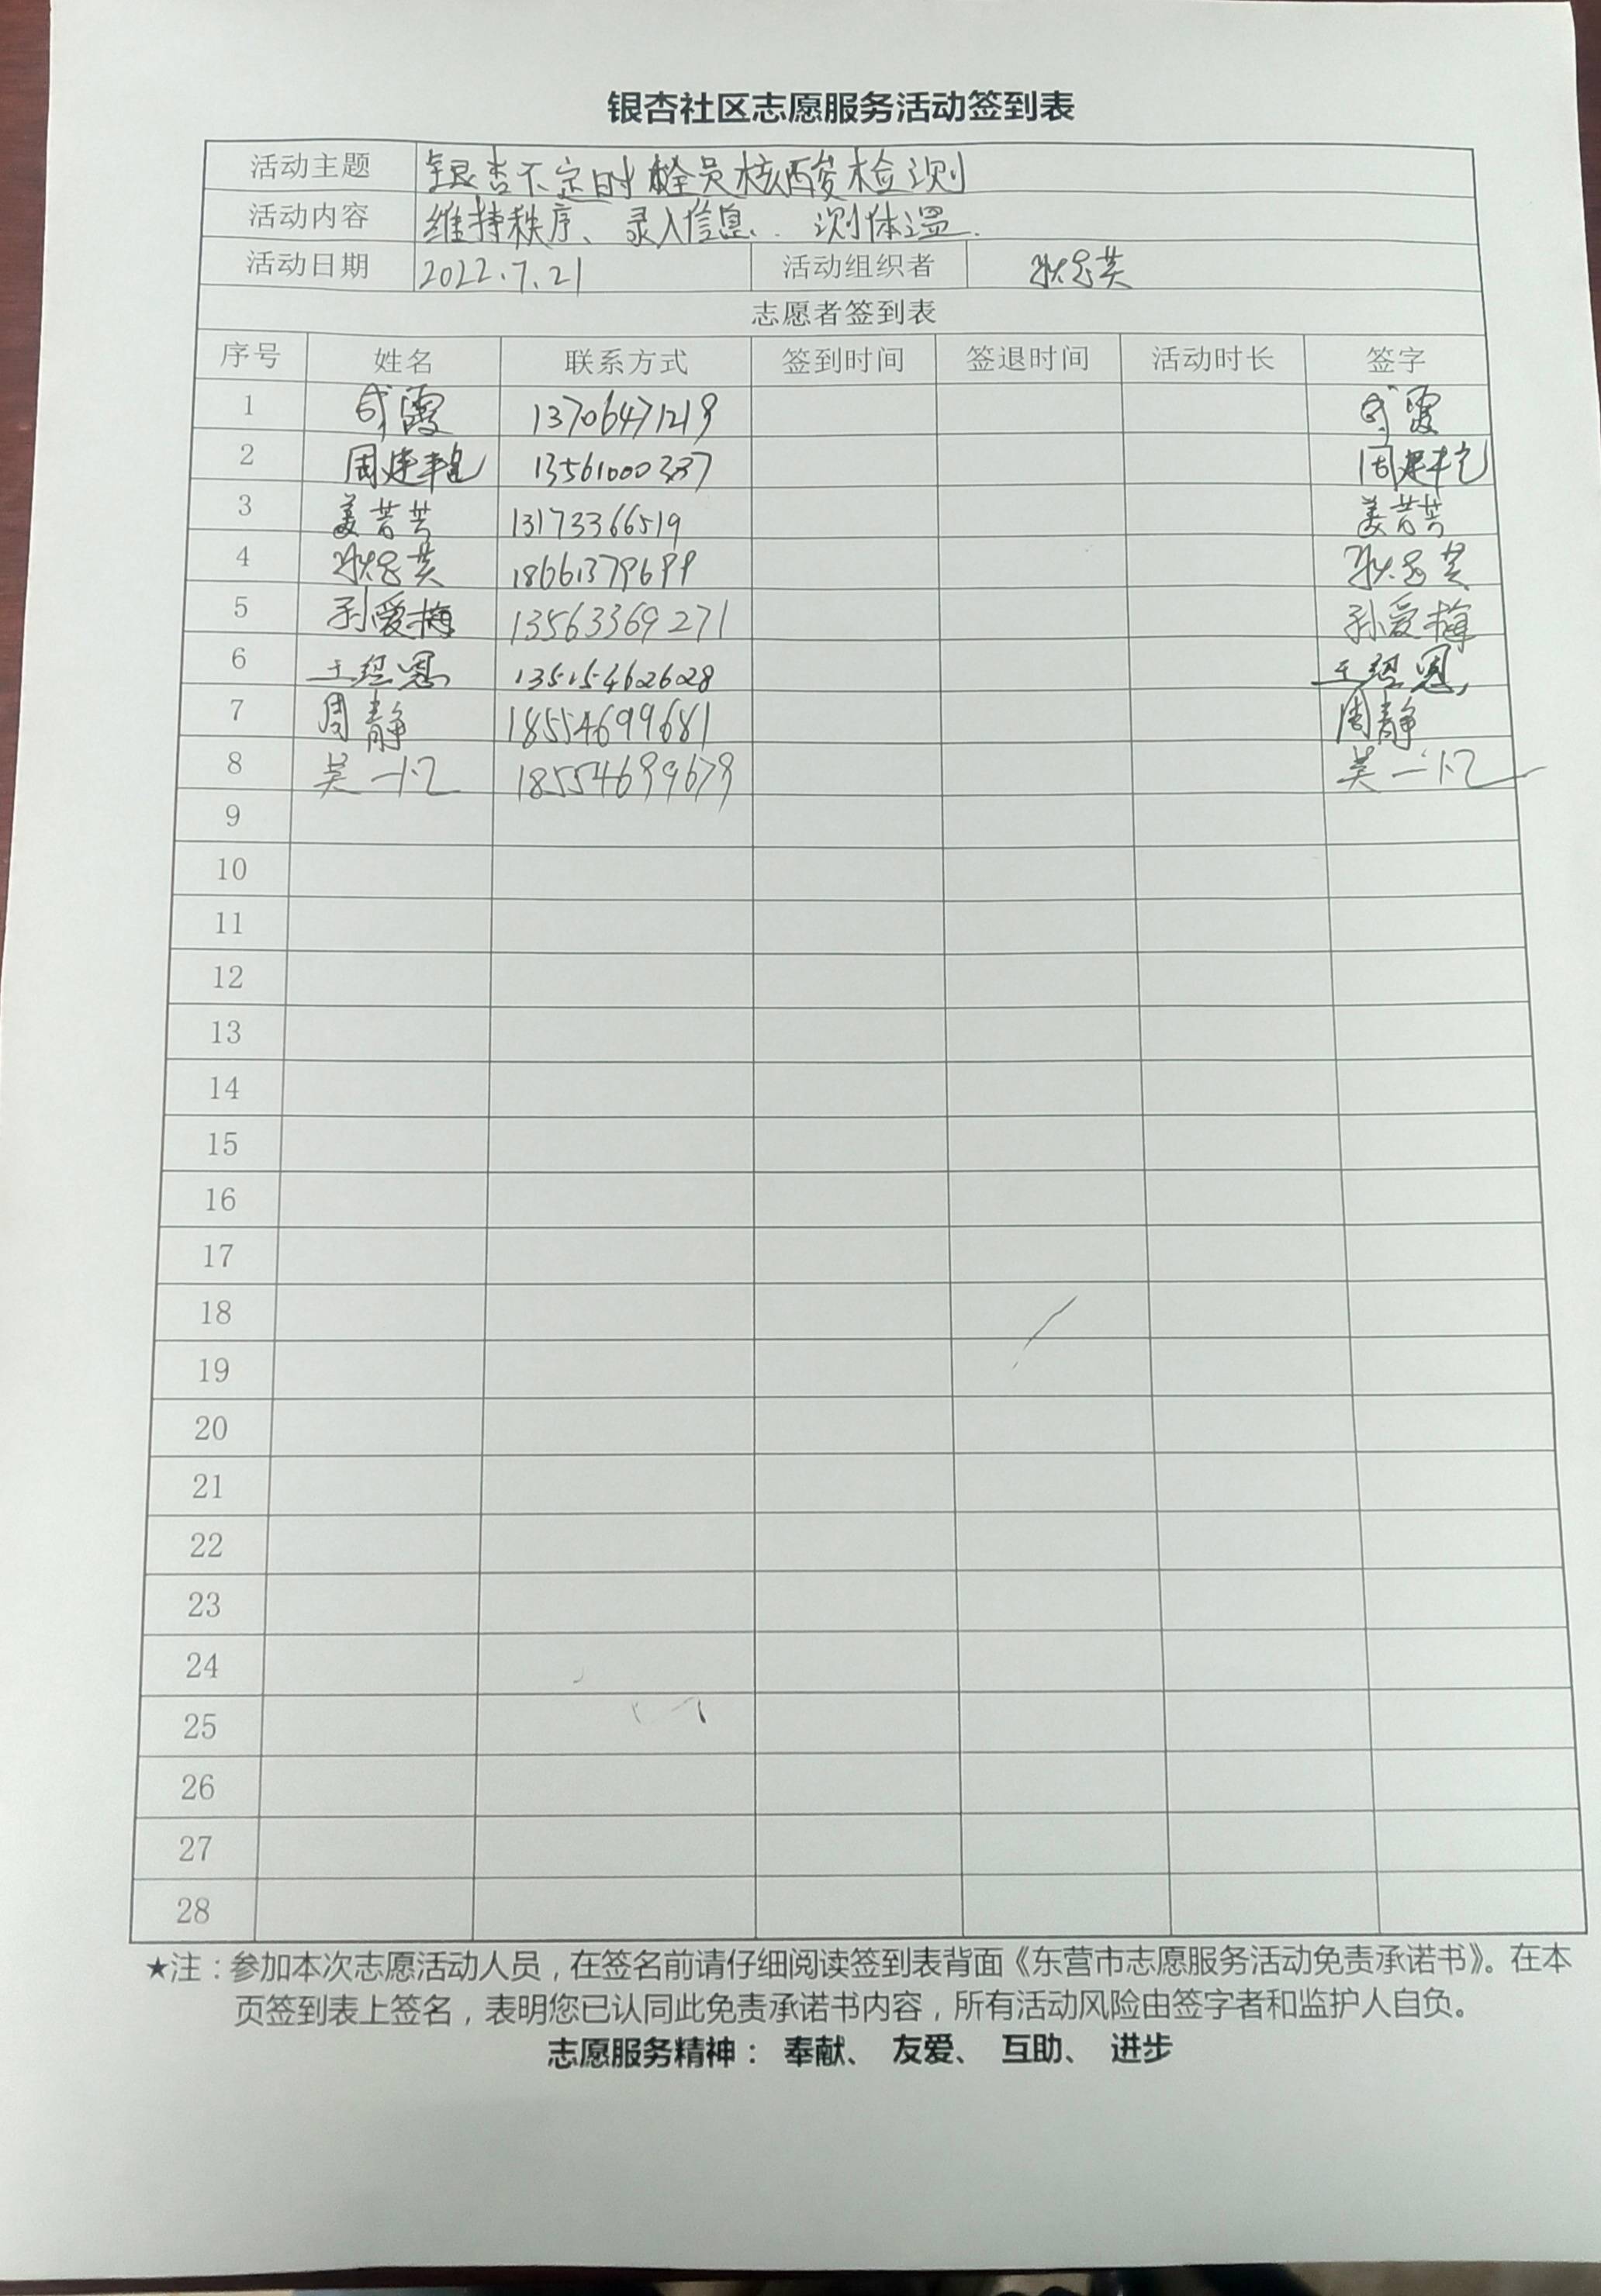 银杏社区志愿服务活动签到表
活动主题 银杏不定时全员核酸检测
活动内容 维持秩序、录入信息、测体温.
活动日期 2022.7.21 活动组织者
志愿者签到表
序号 姓名 联系方式 签到时间 签退时间 活动时长 签字
1 13706471219
2 13561000337
3 姜苦芸 13173366519 姜苦芸
4 18661379699
5 孙爱梅 13563369271 孙爱梅
6 王绍恩 13515462628 王绍恩
7 周静 18554699681 周静
8 吴一忆 18554699679 吴一忆
9
10
11
12
13
14
15
16
17
18
19
20
21
22
23
24
25
26
27
28
★注：参加本次志愿活动人员，在签名前请仔细阅读签到表背面《东营市志愿服务活动免责承诺书》。在本
页签到表上签名，表明您已认同此免责承诺书内容，所有活动风险由签字者和监护人自负。
志愿服务精神： 奉献、 友爱、 互助、 进步